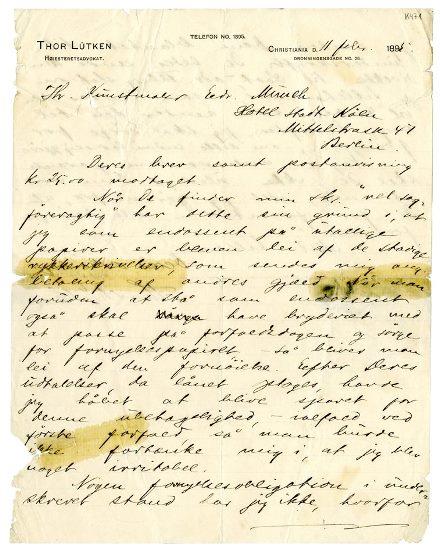 K471
TELEFON NO. 1895.
THOR LÜTKEN
HØIESTERETSADVOKAT.
CHRISTIANIA D. 11 febr. 189
DRONNINGENSGADE NO. 26.
Hr. Kunstmaler Edv. Münch
Hotel Stadt Köln
Mittelstrasse 47
Berlin.
Deres brev samt postanvisning
kr 25.00 modtaget.
Når De finder min skr. "vel sag-
føreragtig" har dette sin grund i, at
jeg som endossent på utallige
papirer er bleven lei af de stadige
rykkerskrivelser, som sendes mig om
betaling af andres gjæld. Får man
foruden at stå som endossent
også skal have bryderiet med
at passe på forfaldsdagen og sørge
for fornyelsespapiret – så bliver man
lei af den fornøielse. Efter Deres
udtalelser, da lånet toges, havde
jeg håbet at blive sparet for
denne ubehagelighed, – ialfald ved
første forfald så man burde
ikke fortænke mig i, at jeg blev
noget irritabel.
Nogen fornyelsesobligation i under-
skrevet stand har jeg ikke, hvorfor